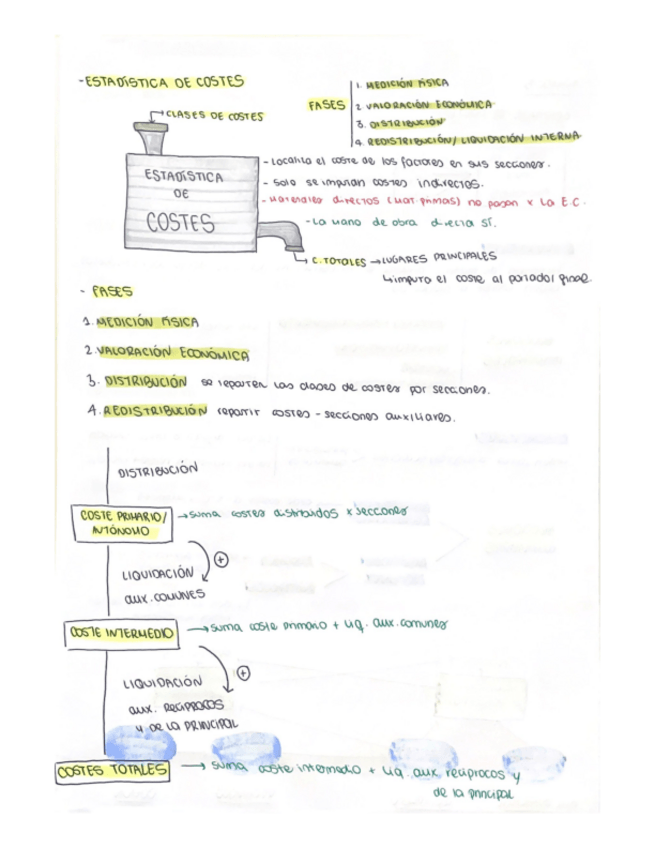 -ESTADÍSTICA DE COSTES
FASES
1. MEDICIÓN FÍSICA
2 VALORACIÓN ECONÓMICA
3. DISTRIBUCIÓN
4. REDISTRIBUCIÓN/ LIQUIDACIÓN INTERNA
CLASES DE COSTES
ESTADÍSTICA
DE
COSTES
- Localiza el coste de los factores en sus secciones.
- solo se imputan costes indirectos.
- Materiales directos (mat. primas) no pasan x la E.C.
- La mano de obra directa sí.
C. TOTALES → LUGARES PRINCIPALES
↳ imputa el coste al portador final.
- FASES
1. MEDICIÓN FÍSICA
2. VALORACIÓN ECONÓMICA
3. DISTRIBUCIÓN se reparten las clases de costes por secciones.
4. REDISTRIBUCIÓN repartir costes - secciones auxiliares.
DISTRIBUCIÓN
COSTE PRIMARIO/
AUTÓNOMO
→ suma costes distribuidos x secciones
+
LIQUIDACIÓN
aux. COMUNES
COSTE INTERMEDIO
→ suma coste primario + liq. aux. comunes
+
LIQUIDACIÓN
aux. RECÍPROCOS
y DE LA PRINCIPAL
COSTES TOTALES
→ suma coste intermedio + liq. aux recíprocos y
de la principal